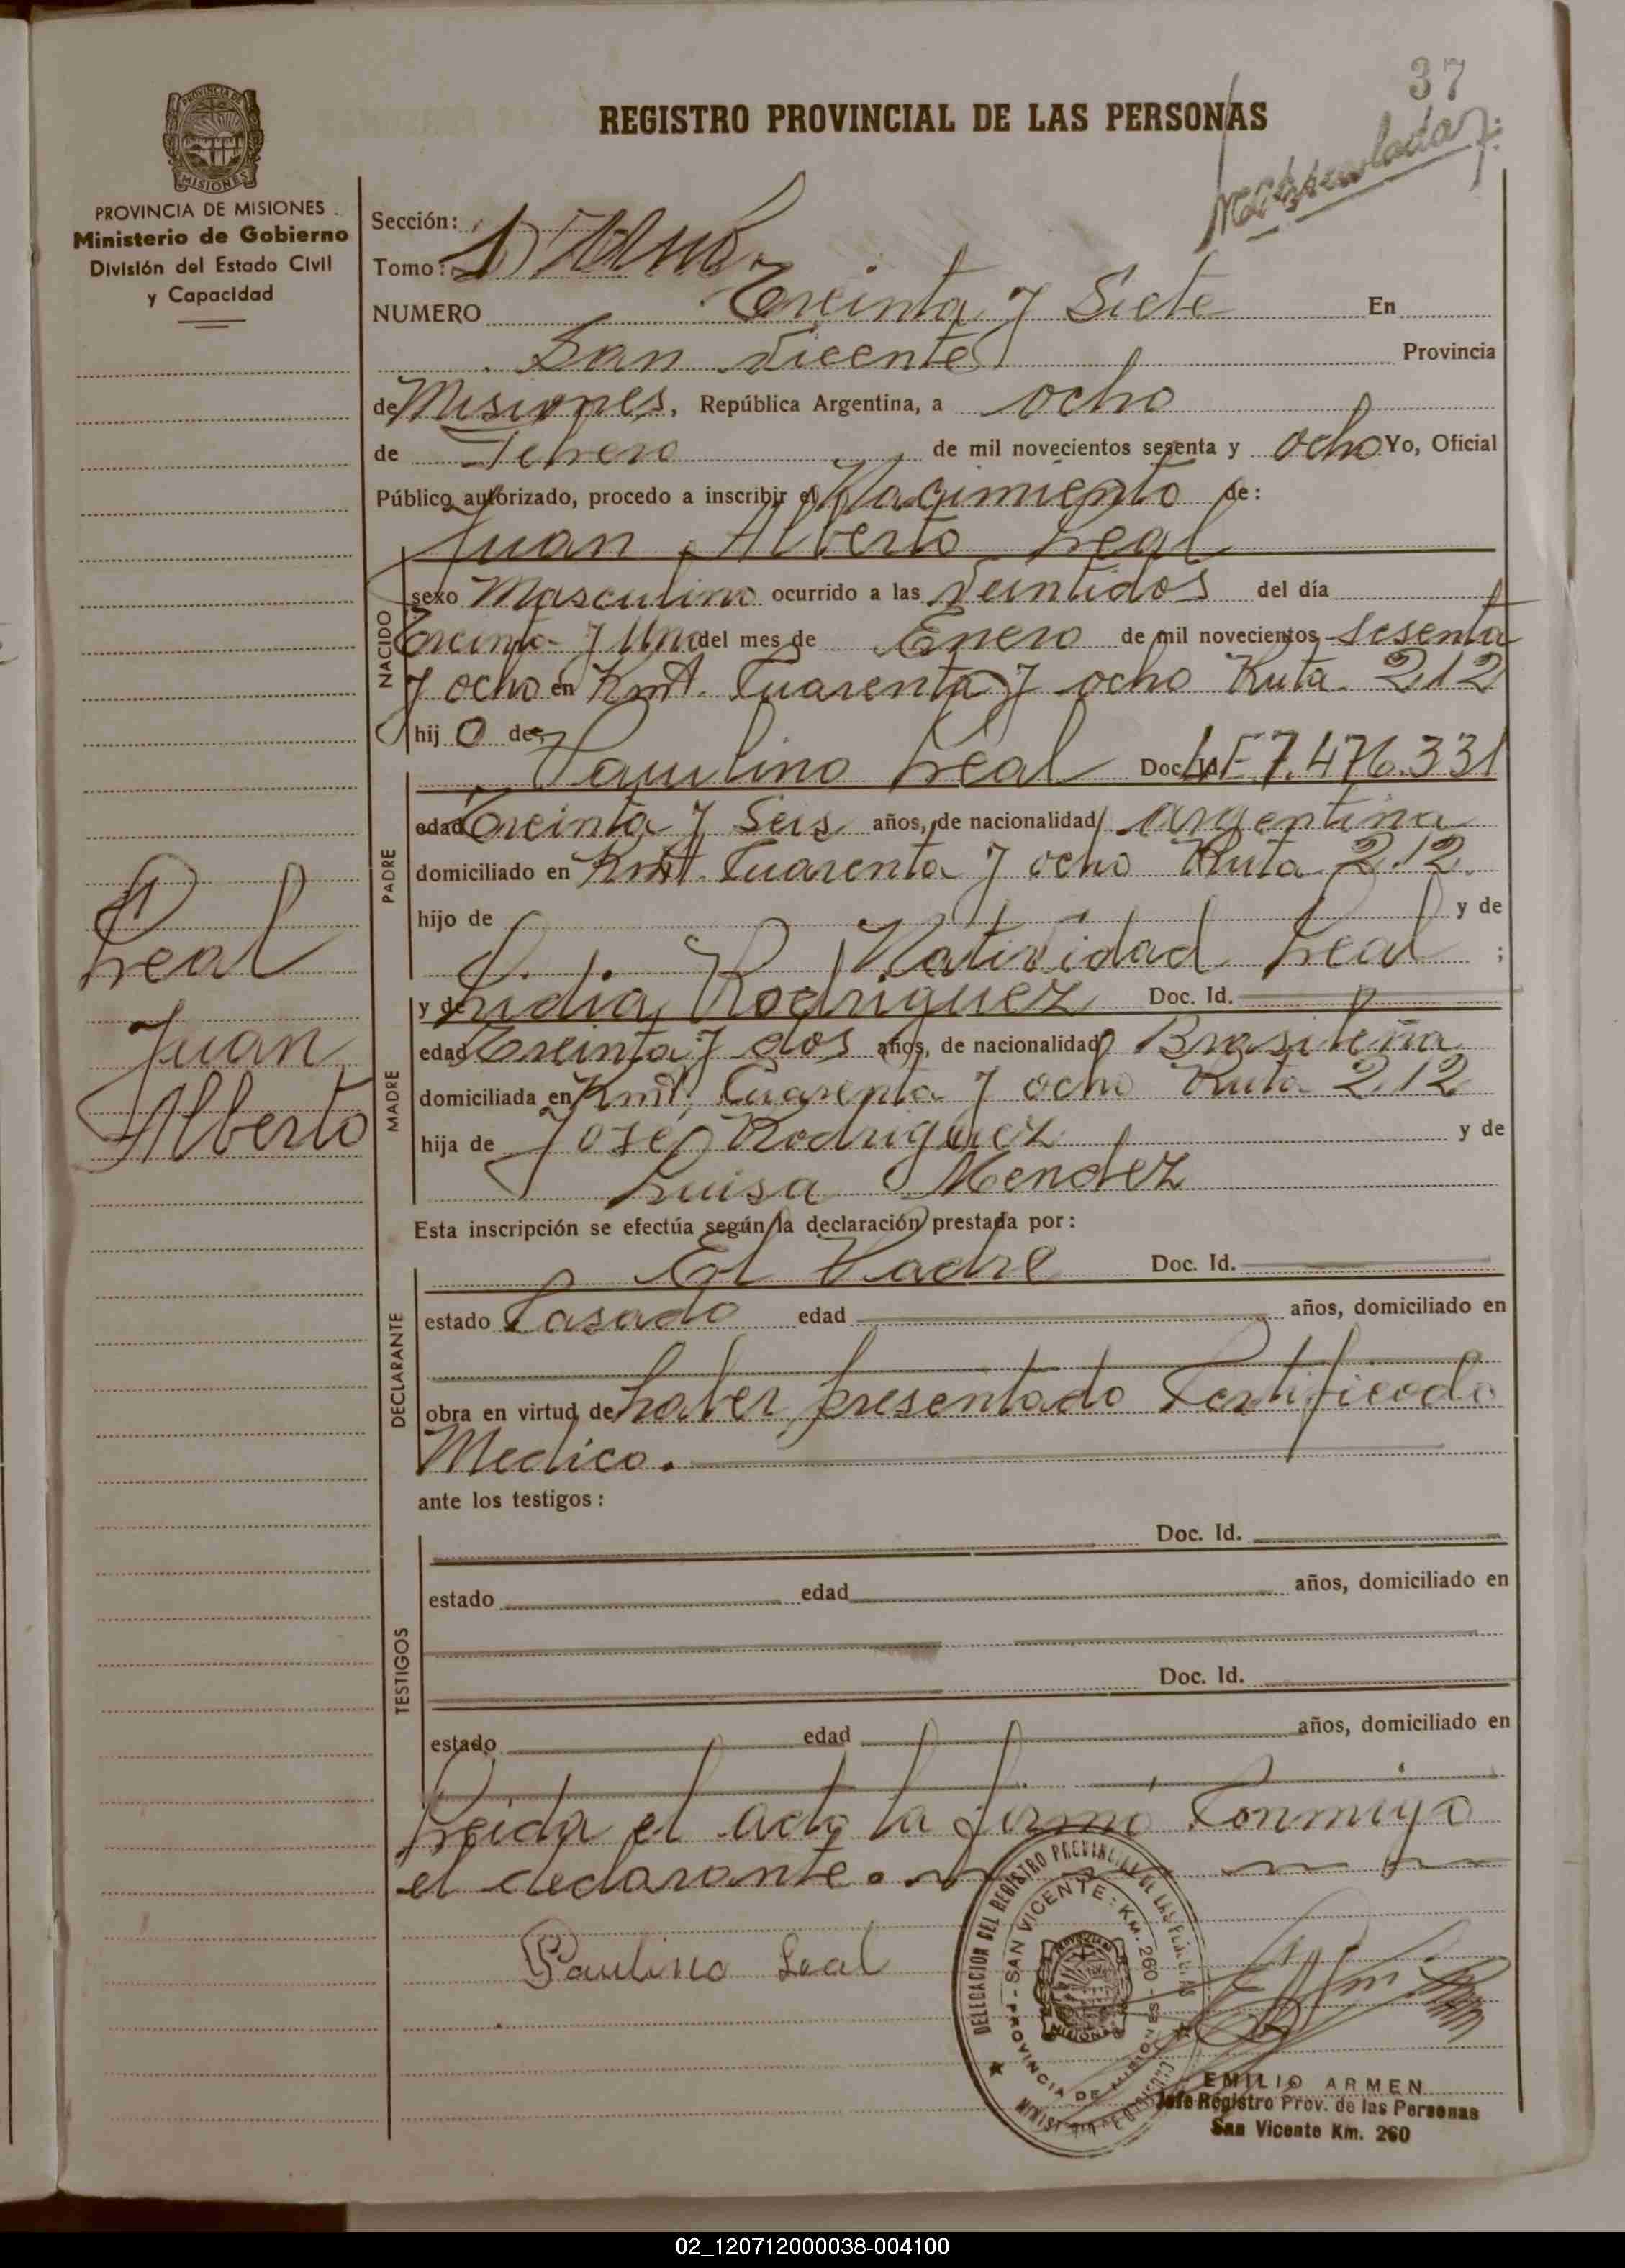 37
REGISTRO PROVINCIAL DE LAS PERSONAS
Matriculado
PROVINCIA DE MISIONES
PROVINCIA DE MISIONES
Ministerio de Gobierno
División del Estado Civil
y Capacidad
Sección:
Tomo: 1
NUMERO Treinta y Siete En
San Vicente Provincia
de Misiones, República Argentina, a ocho
de Febrero de mil novecientos sesenta y ocho Yo, Oficial
Público autorizado, procedo a inscribir el Nacimiento de:
Juan Alberto Leal
NACIDO
sexo Masculino ocurrido a las Veintidos del día
Treinta y Uno del mes de Enero de mil novecientos sesenta
y ocho en Kmt. Cuarenta y ocho Ruta 212
hij o de
Paulino Leal Doc. Id. LE 7.476.331
PADRE
edad Treinta y Seis años, de nacionalidad argentina
domiciliado en Kmt. Cuarenta y ocho Ruta 212.
hijo de y de
Natividad Leal ;
y de Lidia Rodriguez Doc. Id.
MADRE
edad Treinta y dos años, de nacionalidad Brasileña
domiciliada en Kmt. Cuarenta y ocho Ruta 212
hija de José Rodriguez y de
Luisa Mendez
Esta inscripción se efectúa según la declaración prestada por:
DECLARANTE
El Padre Doc. Id.
estado Casado edad años, domiciliado en
obra en virtud de haber presentado Certificado
Medico.
ante los testigos:
TESTIGOS
Doc. Id.
estado edad años, domiciliado en
Doc. Id.
estado edad años, domiciliado en
Leida el acta la firmó Conmigo
el declarante.
Paulino Leal
DELEGACION DEL REGISTRO PROVINCIAL DE LAS PERSONAS
SAN VICENTE - KM. 260
PROVINCIA DE MISIONES
MISIONES
EMILIO ARMEN
Jefe Registro Prov. de las Personas
San Vicente Km. 260
Leal
Juan
Alberto
02_120712000038-004100